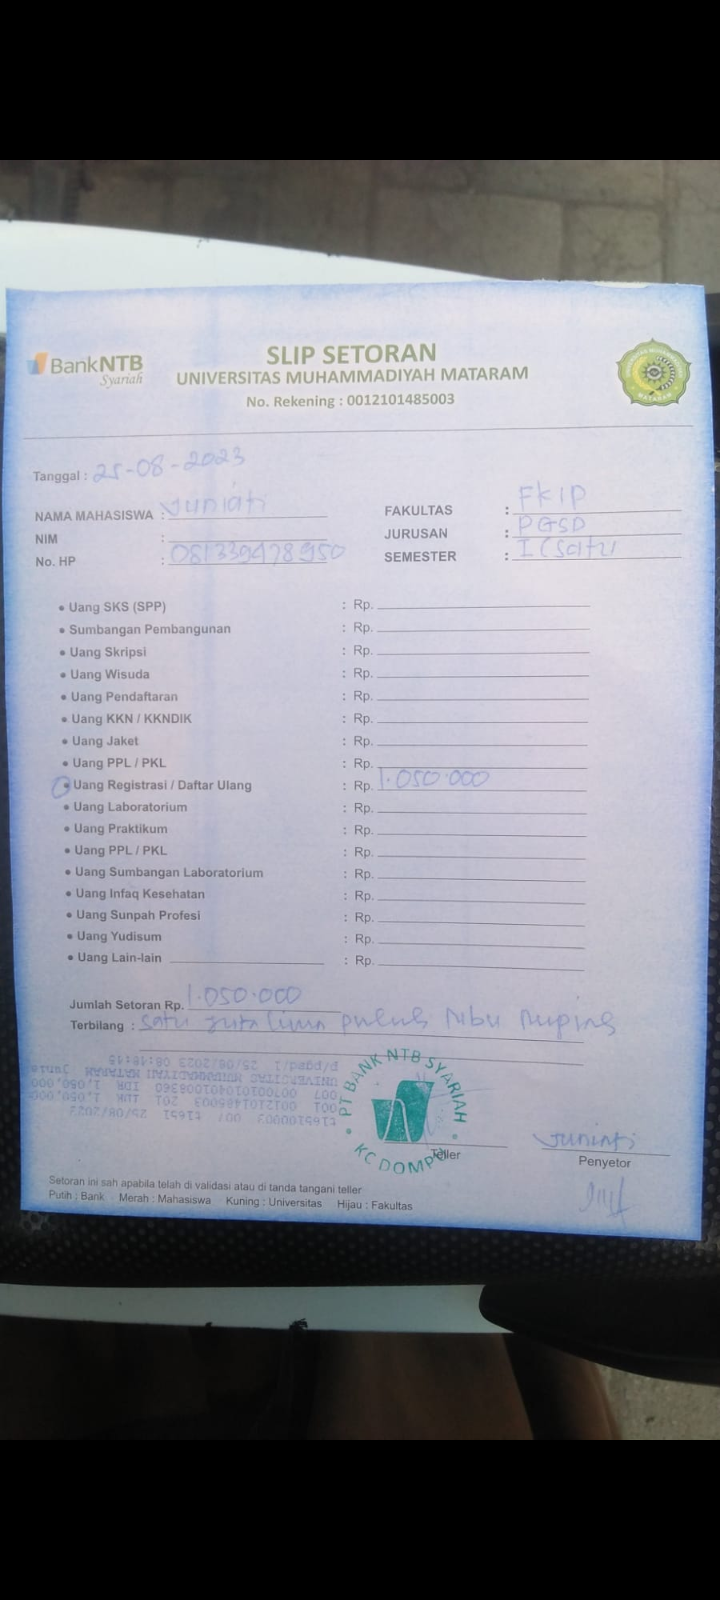 BankNTB
Syariah
SLIP SETORAN
UNIVERSITAS MUHAMMADIYAH MATARAM
No. Rekening : 0012101485003
Tanggal : 25-08-2023
NAMA MAHASISWA : Juniati
NIM :
No. HP : 081339478950
FAKULTAS : FKIP
JURUSAN : PGSD
SEMESTER : I (satu
• Uang SKS (SPP) : Rp.
• Sumbangan Pembangunan : Rp.
• Uang Skripsi : Rp.
• Uang Wisuda : Rp.
• Uang Pendaftaran : Rp.
• Uang KKN / KKNDIK : Rp.
• Uang Jaket : Rp.
• Uang PPL / PKL : Rp.
• Uang Registrasi / Daftar Ulang : Rp. 1.050.000
• Uang Laboratorium : Rp.
• Uang Praktikum : Rp.
• Uang PPL / PKL : Rp.
• Uang Sumbangan Laboratorium : Rp.
• Uang Infaq Kesehatan : Rp.
• Uang Sunpah Profesi : Rp.
• Uang Yudisum : Rp.
• Uang Lain-lain : Rp.
Jumlah Setoran Rp. 1.050.000
Terbilang : satu juta lima puluh ribu rupiah
PT BANK NTB SYARIAH
KC DOMPU
Teller
Juniati
Penyetor
Setoran ini sah apabila telah di validasi atau di tanda tangani teller
Putih : Bank Merah : Mahasiswa Kuning : Universitas Hijau : Fakultas